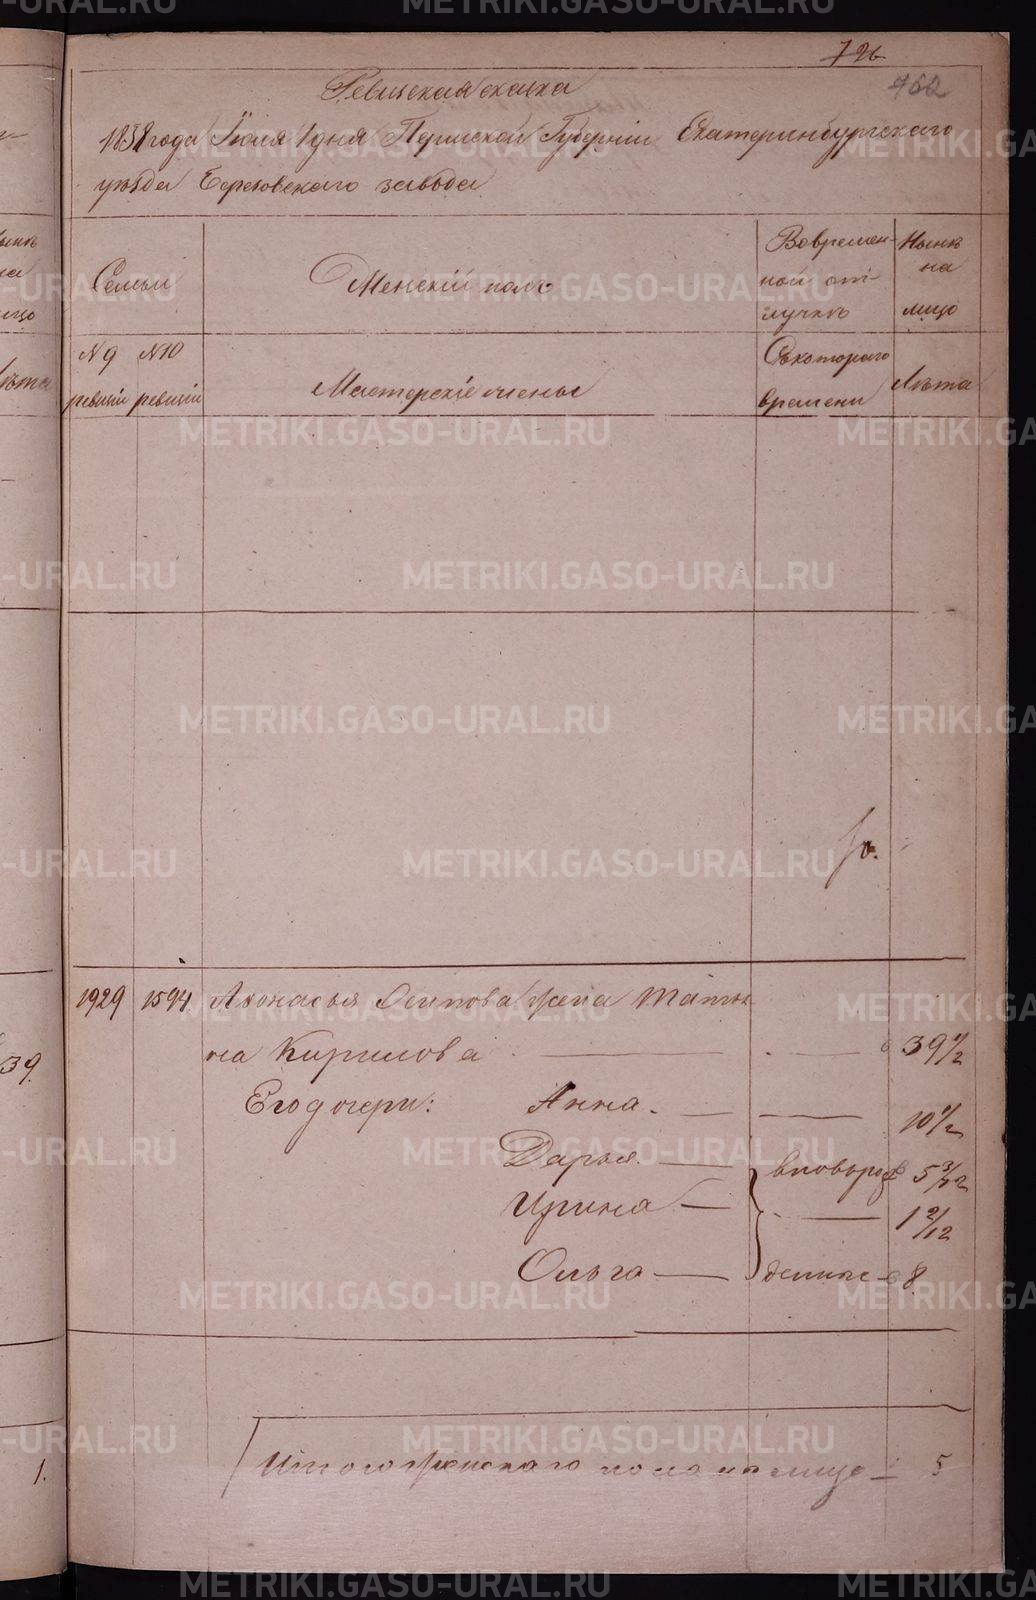 726
762
Ревизская сказка
1858 года Июня 1 дня Пермской Губерніи Екатеринбургскаго
уѣзда Березовскаго завода
Семьи
Женскій полъ
Вовремен-
ной от-
лучкѣ
Нынѣ
на
лицо
№ 9
ревизіи
№ 10
ревизіи
Мастерскіе члены
Съкотораго
времени
Лѣта
1929 1594 Афонасья Осипова жена Татья
на Кирилова — — 39 1/2
Его дочери: Анна. — — 10 1/2
Дарья — вновьрож 5 3/12
Ирина — — 1 2/12
Ольга — денные 8
Итого женскаго пола на лицо — 5
39.
1.
METRIKI.GASO-URAL.RU